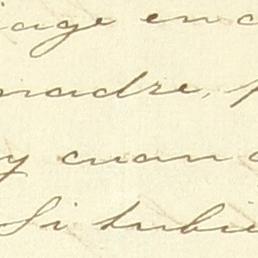 iage en c
madre, p
y cuan
Si tubie